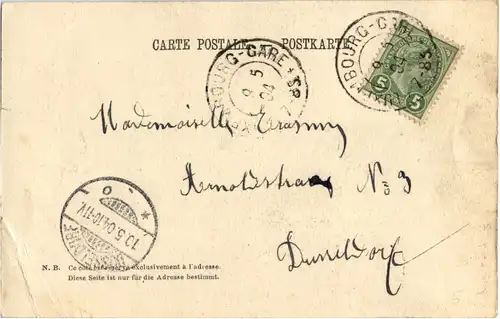 CARTE POSTALE POSTKARTE
LUXEMBOURG-GARE
9 5
04
LUXEMBOURG-GARE
9 5
04
5 5
Mademoiselle Erasmy
Arnoldstrasse No 3
Dusseldorf
10.5.04.10-11V.
N. B. Ce côté est réservé exclusivement à l'adresse.
Diese Seite ist nur für die Adresse bestimmt.